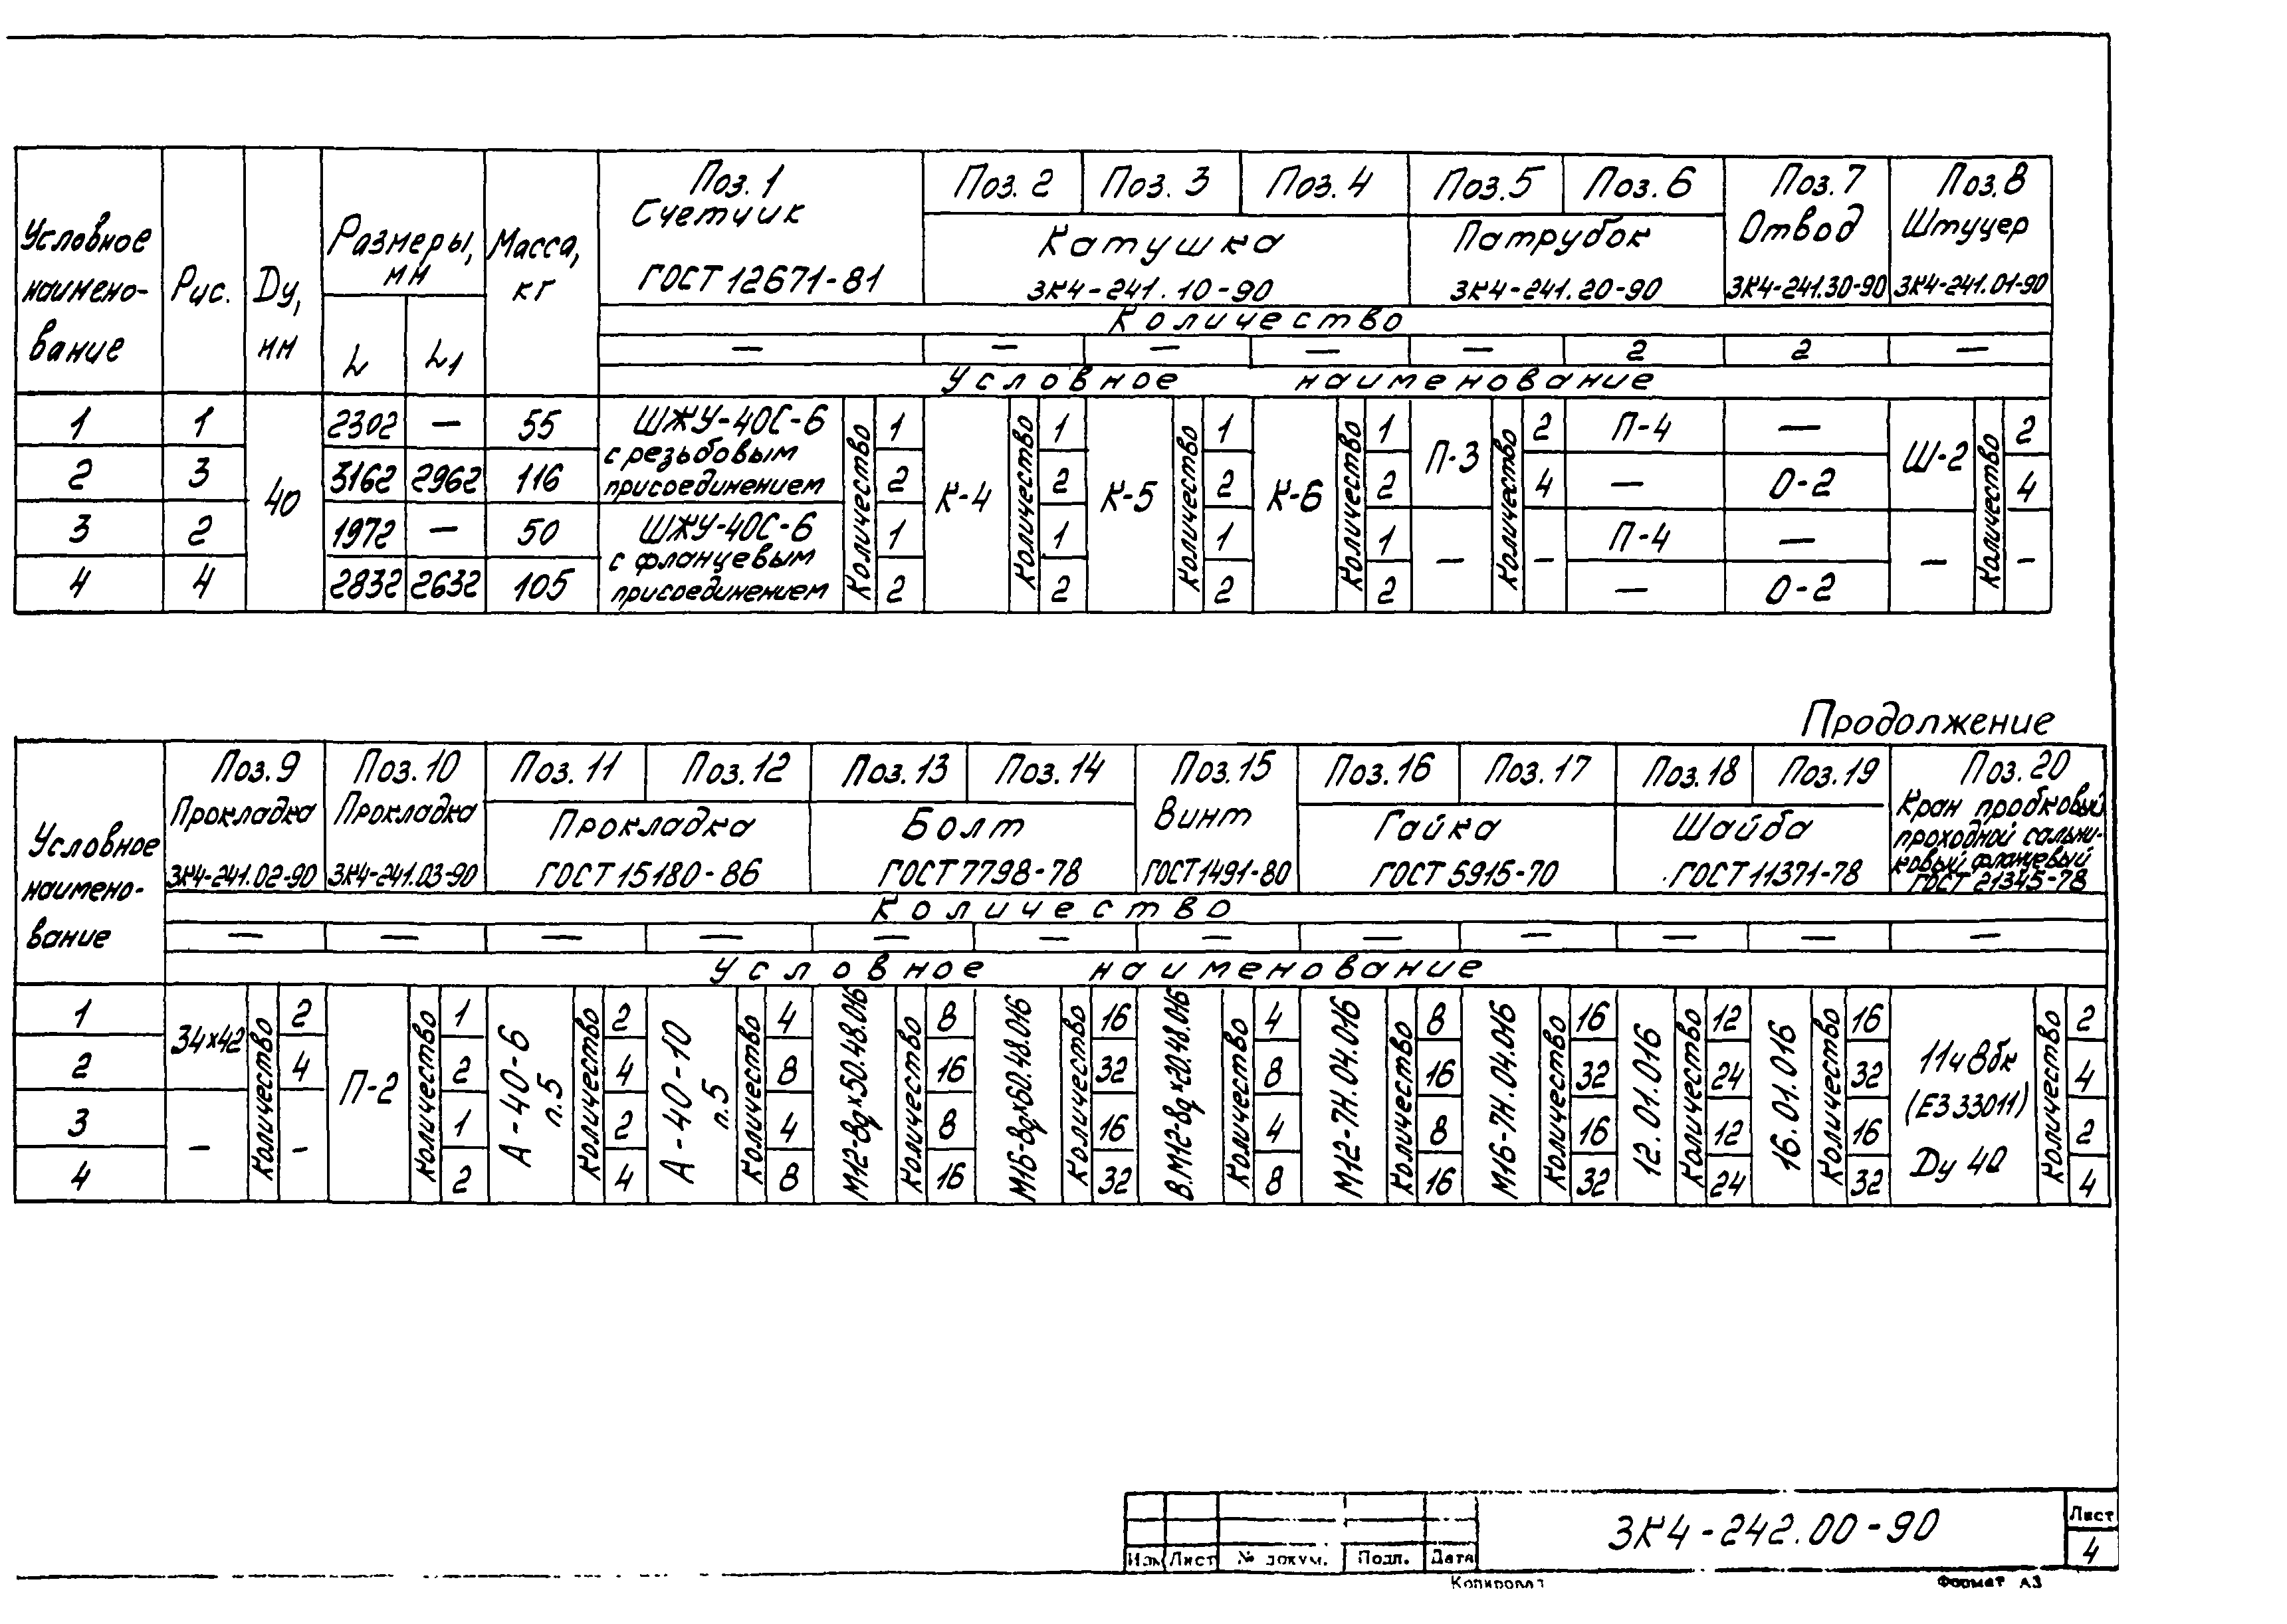 Условное наимено- вание
Рис.
Dу, мм
Размеры, мм
L L1
Масса, кг
Поз. 1 Счетчик ГОСТ 12671-81
Поз. 2 Поз. 3 Поз. 4
Катушка
ЗК4-241.10-90
Поз. 5 Поз. 6
Патрубок
ЗК4-241.20-90
Поз. 7 Отвод ЗК4-241.30-90
Поз. 8 Штуцер ЗК4-241.01-90
Количество
— — — — — 2 2 —
Условное наименование
1 1 2302 — 55
2 3 3162 2962 116
3 2 1972 — 50
4 4 2832 2632 105
40
ШЖУ-40С-6
с резьбовым
присоединением
ШЖУ-40С-6
с фланцевым
присоединением
Количество 1 2 1 2
К-4 Количество 1 2 1 2
К-5 Количество 1 2 1 2
К-6 Количество 1 2 1 2
П-3 — Количество 2 4 -
П-4 — П-4 —
— О-2 — О-2
Ш-2 — Количество 2 4 -
Продолжение
Условное наимено- вание
Поз. 9 Прокладка ЗК4-241.02-90
Поз. 10 Прокладка ЗК4-241.03-90
Поз. 11 Поз. 12
Прокладка
ГОСТ 15180-86
Поз. 13 Поз. 14
Болт
ГОСТ 7798-78
Поз. 15 Винт ГОСТ 1491-80
Поз. 16 Поз. 17
Гайка
ГОСТ 5915-70
Поз. 18 Поз. 19
Шайба
ГОСТ 11371-78
Поз. 20
Кран пробковый
проходной сальни-
ковый фланцевый
ГОСТ 21345-78
Количество
— — — — — — — — — — — —
Условное наименование
1
2
3
4
34×42 - Количество 2 4 -
П-2 Количество 1 2 1 2
А-40-6 п.5 Количество 2 4 2 4
А-40-10 п.5 Количество 4 8 4 8
М12-8g×50.48.016 Количество 8 16 8 16
М16-8g×60.48.016 Количество 16 32 16 32
В.М12-8g×20.48.016 Количество 4 8 4 8
М12-7Н.04.016 Количество 8 16 8 16
М16-7Н.04.016 Количество 16 32 16 32
12.01.016 Количество 12 24 12 24
16.01.016 Количество 16 32 16 32
11ч8бк
(ЕЗ 33011)
Dу 40
Количество 2 4 2 4
Изм Лист № докум. Подп. Дата
ЗК4-242.00-90
Лист
4
Копировал
Формат А3